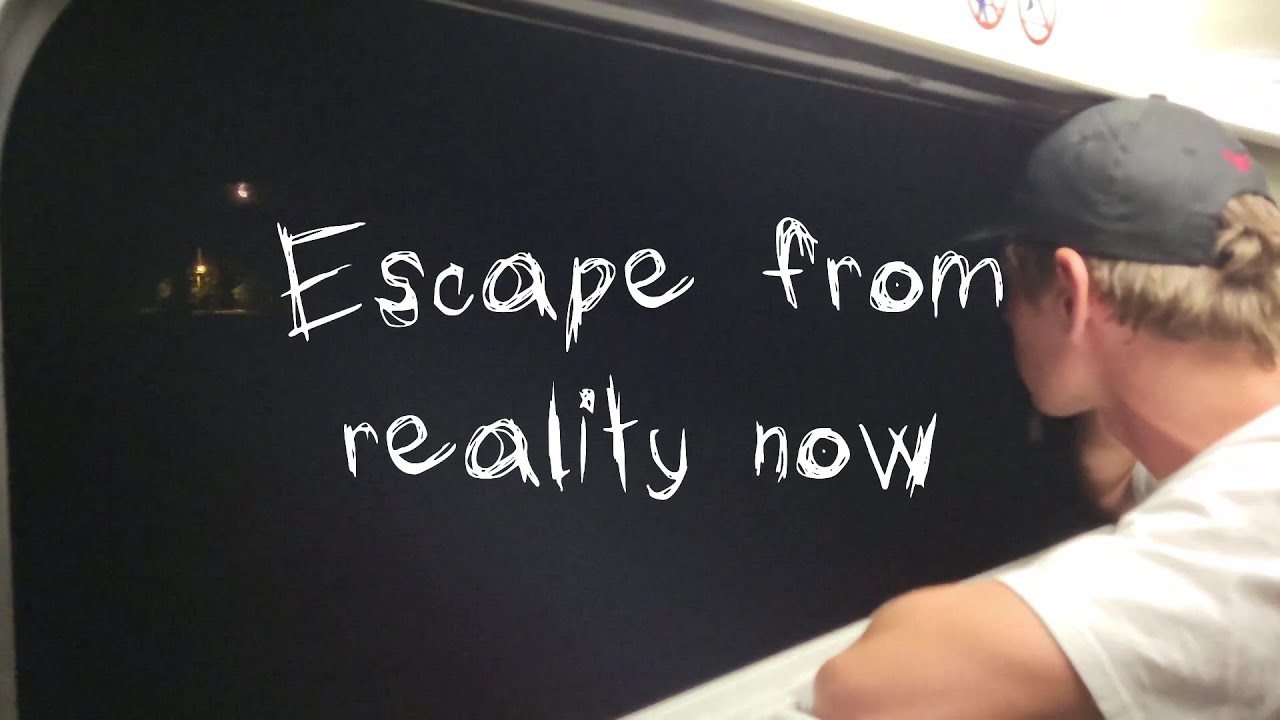 Escape from
reality now